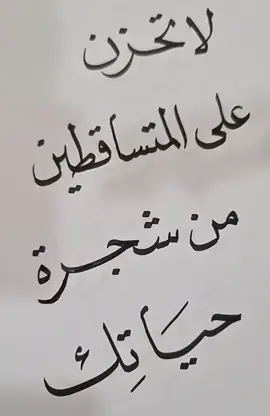 لا تحزن
على المتساقطين
من شجرة
حيَاتِك